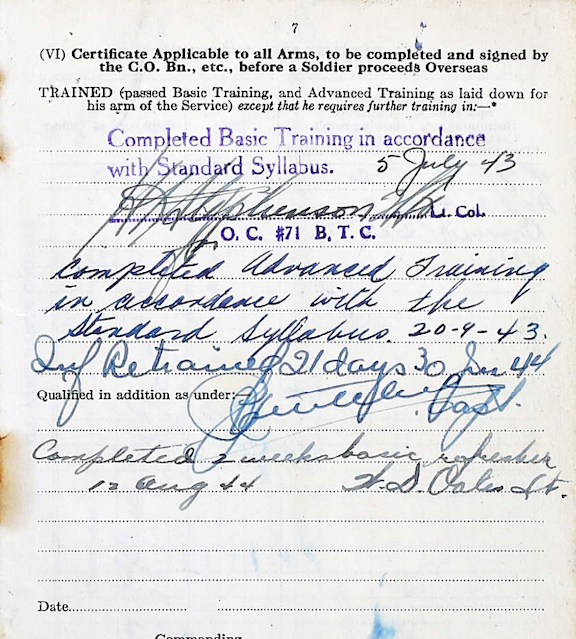 7
(VI) Certificate Applicable to all Arms, to be completed and signed by
the C.O. Bn., etc., before a Soldier proceeds Overseas
TRAINED (passed Basic Training, and Advanced Training as laid down for
his arm of the Service) except that he requires further training in:—*
Completed Basic Training in accordance
with Standard Syllabus. 5 July 43
Stephenson Lt. Col.
for O. C. #71 B. T. C.
Completed Advanced Training
in accordance with the
Standard Syllabus. 20-9-43.
Inf Retrained 21 days 30 44
Qualified in addition as under:— Capt.
Completed 2 weeks basic refresher
12 Aug 44 Lt.
Date
Commanding